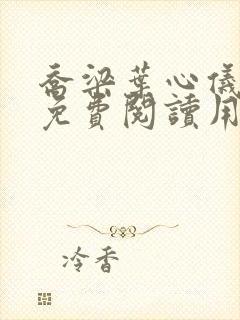 喬梁葉心儀
免費閱讀用
冷香